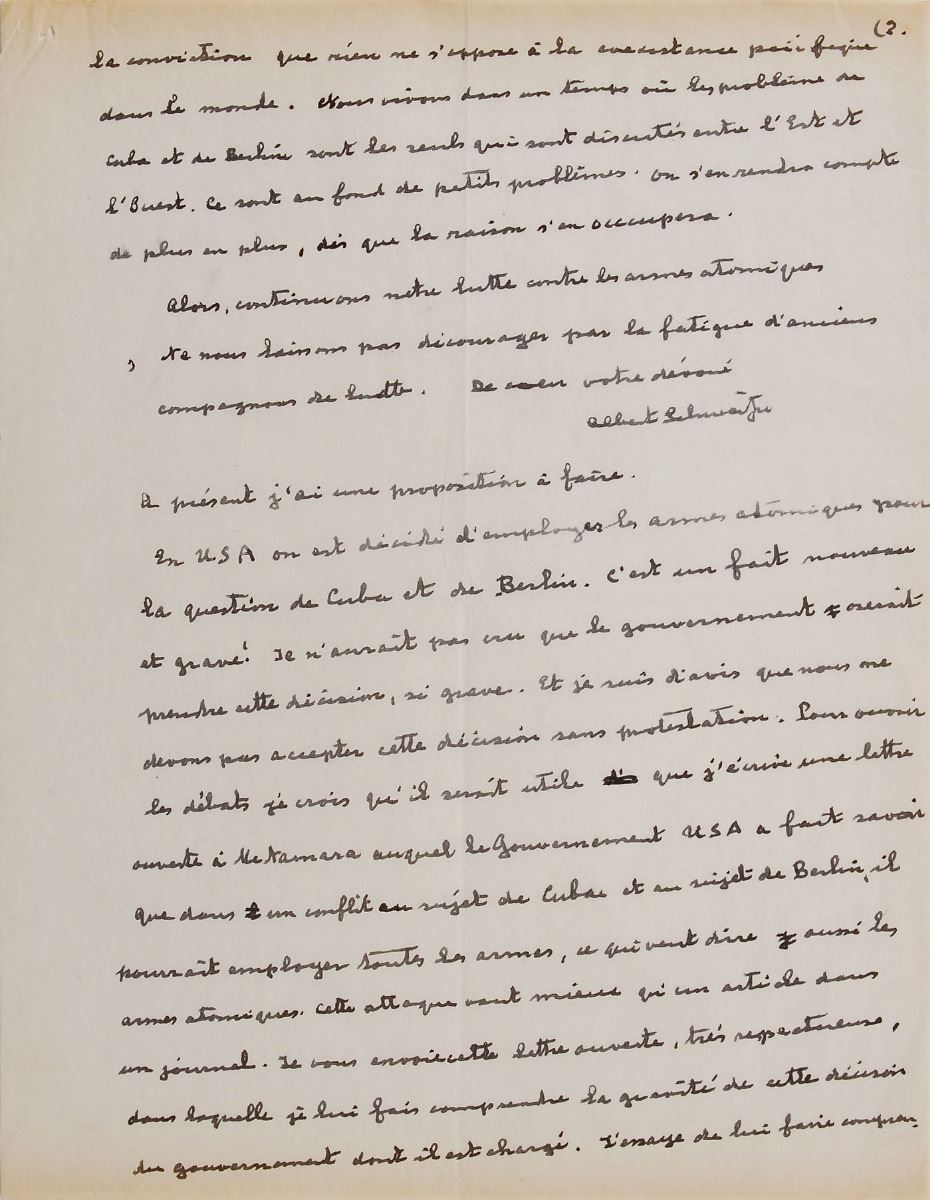 (2.
la conviction que rien ne s'oppose à la coexistance pacifique
dans le monde. Nous vivons dans un temps où les problème de
Cuba et de Berlin sont les seuls qui sont discutés entre l'Est et
l'Ouest. Ce sont au fond de petits problèmes. On s'en rendra compte
de plus en plus, dès que la raison s'en occupera.
Alors, continuons notre lutte contre les armes atomiques
, Ne nous laissons pas décourager par la fatigue d'anciens
compagnons de lutte. De coeur votre dévoué
Albert Schweitzer
A présent j'ai une proposition à faire.
En USA on est décidé d'employer les armes atomiques pour
la question de Cuba et de Berlin. C'est un fait nouveau
et grave! Je n'aurait pas cru que le gouvernement oserait
prendre cette décision, si grave. Et je suis d'avis que nous ne
devons pas accepter cette décision sans protestation. Pour ouvrir
les débats je crois qu'il serait utile que j'écrive une lettre
ouverte à McNamara auquel le Gouvernement USA a fait savoir
que dans un conflit au sujet de Cuba et au sujet de Berlin, il
pourrait employer toutes les armes, ce qui veut dire aussi les
armes atomiques. Cette attaque vaut mieux qu'un article dans
un journal. Je vous envoie cette lettre ouverte, très respectueuse,
dans laquelle je lui fais comprendre la gravité de cette décision
du gouvernement dont il est chargé. J'essaye de lui faire compren-